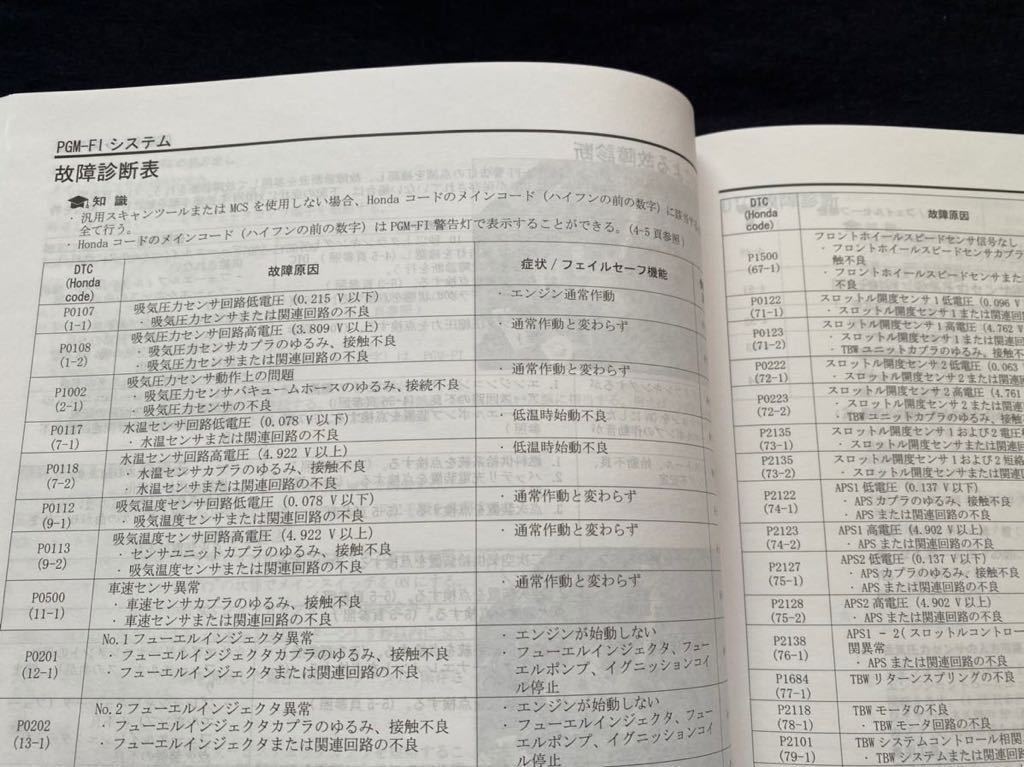 PGM-FI システム
故障診断表
知 識
・汎用スキャンツールまたは MCS を使用しない場合、Honda コードのメインコード（ハイフンの前の数字）に
全て行う。
・Honda コードのメインコード（ハイフンの前の数字）は PGM-FI 警告灯で表示することができる。(4-5 頁参照)
DTC
(Honda
code)
故障原因
症状 / フェイルセーフ機能
P0107
(1-1)
吸気圧力センサ回路低電圧 (0.215 V 以下)
・吸気圧力センサまたは関連回路の不良
・エンジン通常作動
P0108
(1-2)
吸気圧力センサ回路高電圧 (3.809 V 以上)
・吸気圧力センサカプラのゆるみ、接触不良
・吸気圧力センサまたは関連回路の不良
・通常作動と変わらず
P1002
(2-1)
吸気圧力センサ動作上の問題
・吸気圧力センサバキュームホースのゆるみ、接続不良
・吸気圧力センサの不良
・通常作動と変わらず
P0117
(7-1)
水温センサ回路低電圧 (0.078 V 以下)
・水温センサまたは関連回路の不良
・低温時始動不良
P0118
(7-2)
水温センサ回路高電圧 (4.922 V 以上)
・水温センサカプラのゆるみ、接触不良
・水温センサまたは関連回路の不良
・低温時始動不良
P0112
(9-1)
吸気温度センサ回路低電圧 (0.078 V 以下)
・吸気温度センサまたは関連回路の不良
・通常作動と変わらず
P0113
(9-2)
吸気温度センサ回路高電圧 (4.922 V 以上)
・センサユニットカプラのゆるみ、接触不良
・吸気温度センサまたは関連回路の不良
・通常作動と変わらず
P0500
(11-1)
車速センサ異常
・車速センサカプラのゆるみ、接触不良
・車速センサまたは関連回路の不良
・通常作動と変わらず
P0201
(12-1)
No.1 フューエルインジェクタ異常
・フューエルインジェクタカプラのゆるみ、接触不良
・フューエルインジェクタまたは関連回路の不良
・エンジンが始動しない
・フューエルインジェクタ、フュー
エルポンプ、イグニッションコイ
ル停止
P0202
(13-1)
No.2 フューエルインジェクタ異常
・フューエルインジェクタカプラのゆるみ、接触不良
・フューエルインジェクタまたは関連回路の不良
・エンジンが始動しない
・フューエルインジェクタ、フュー
エルポンプ、イグニッションコイ
ル停止
DTC
(Honda
code)
故障原因
P1500
(67-1)
フロントホイールスピードセンサ信号なし
・フロントホイールスピードセンサカプラ
触不良
・フロントホイールスピードセンサまた
不良
P0122
(71-1)
スロットル開度センサ 1 低電圧 (0.096 V
・スロットル開度センサ 1 または関連回
P0123
(71-2)
スロットル開度センサ 1 高電圧 (4.762 V
・スロットル開度センサ 1 または関連回
・TBW ユニットカプラのゆるみ、接触不
P0222
(72-1)
スロットル開度センサ 2 低電圧 (0.063
・スロットル開度センサ 2 または関連
P0223
(72-2)
スロットル開度センサ 2 高電圧 (4.761
・スロットル開度センサ 2 または関連
・TBW ユニットカプラのゆるみ、接触
P2135
(73-1)
スロットル開度センサ 1 および 2 電圧
・スロットル開度センサまたは関連
P2135
(73-2)
スロットル開度センサ 1 および 2 短絡
・スロットル開度センサまたは関連
P2122
(74-1)
APS1 低電圧 (0.137 V 以下)
・APS カプラのゆるみ、接触不良
・APS または関連回路の不良
P2123
(74-2)
APS1 高電圧 (4.902 V 以上)
・APS または関連回路の不良
P2127
(75-1)
APS2 低電圧 (0.137 V 以下)
・APS カプラのゆるみ、接触不良
・APS または関連回路の不良
P2128
(75-2)
APS2 高電圧 (4.902 V 以上)
・APS または関連回路の不良
P2138
(76-1)
APS1 - 2(スロットルコントロー
関異常
・APS または関連回路の不良
P1684
(77-1)
TBW リターンスプリングの不良
P2118
(78-1)
TBW モータの不良
・TBW モータ回路の不良
P2101
(79-1)
TBW システムコントロール相関
・TBW システムまたは関連回路の不